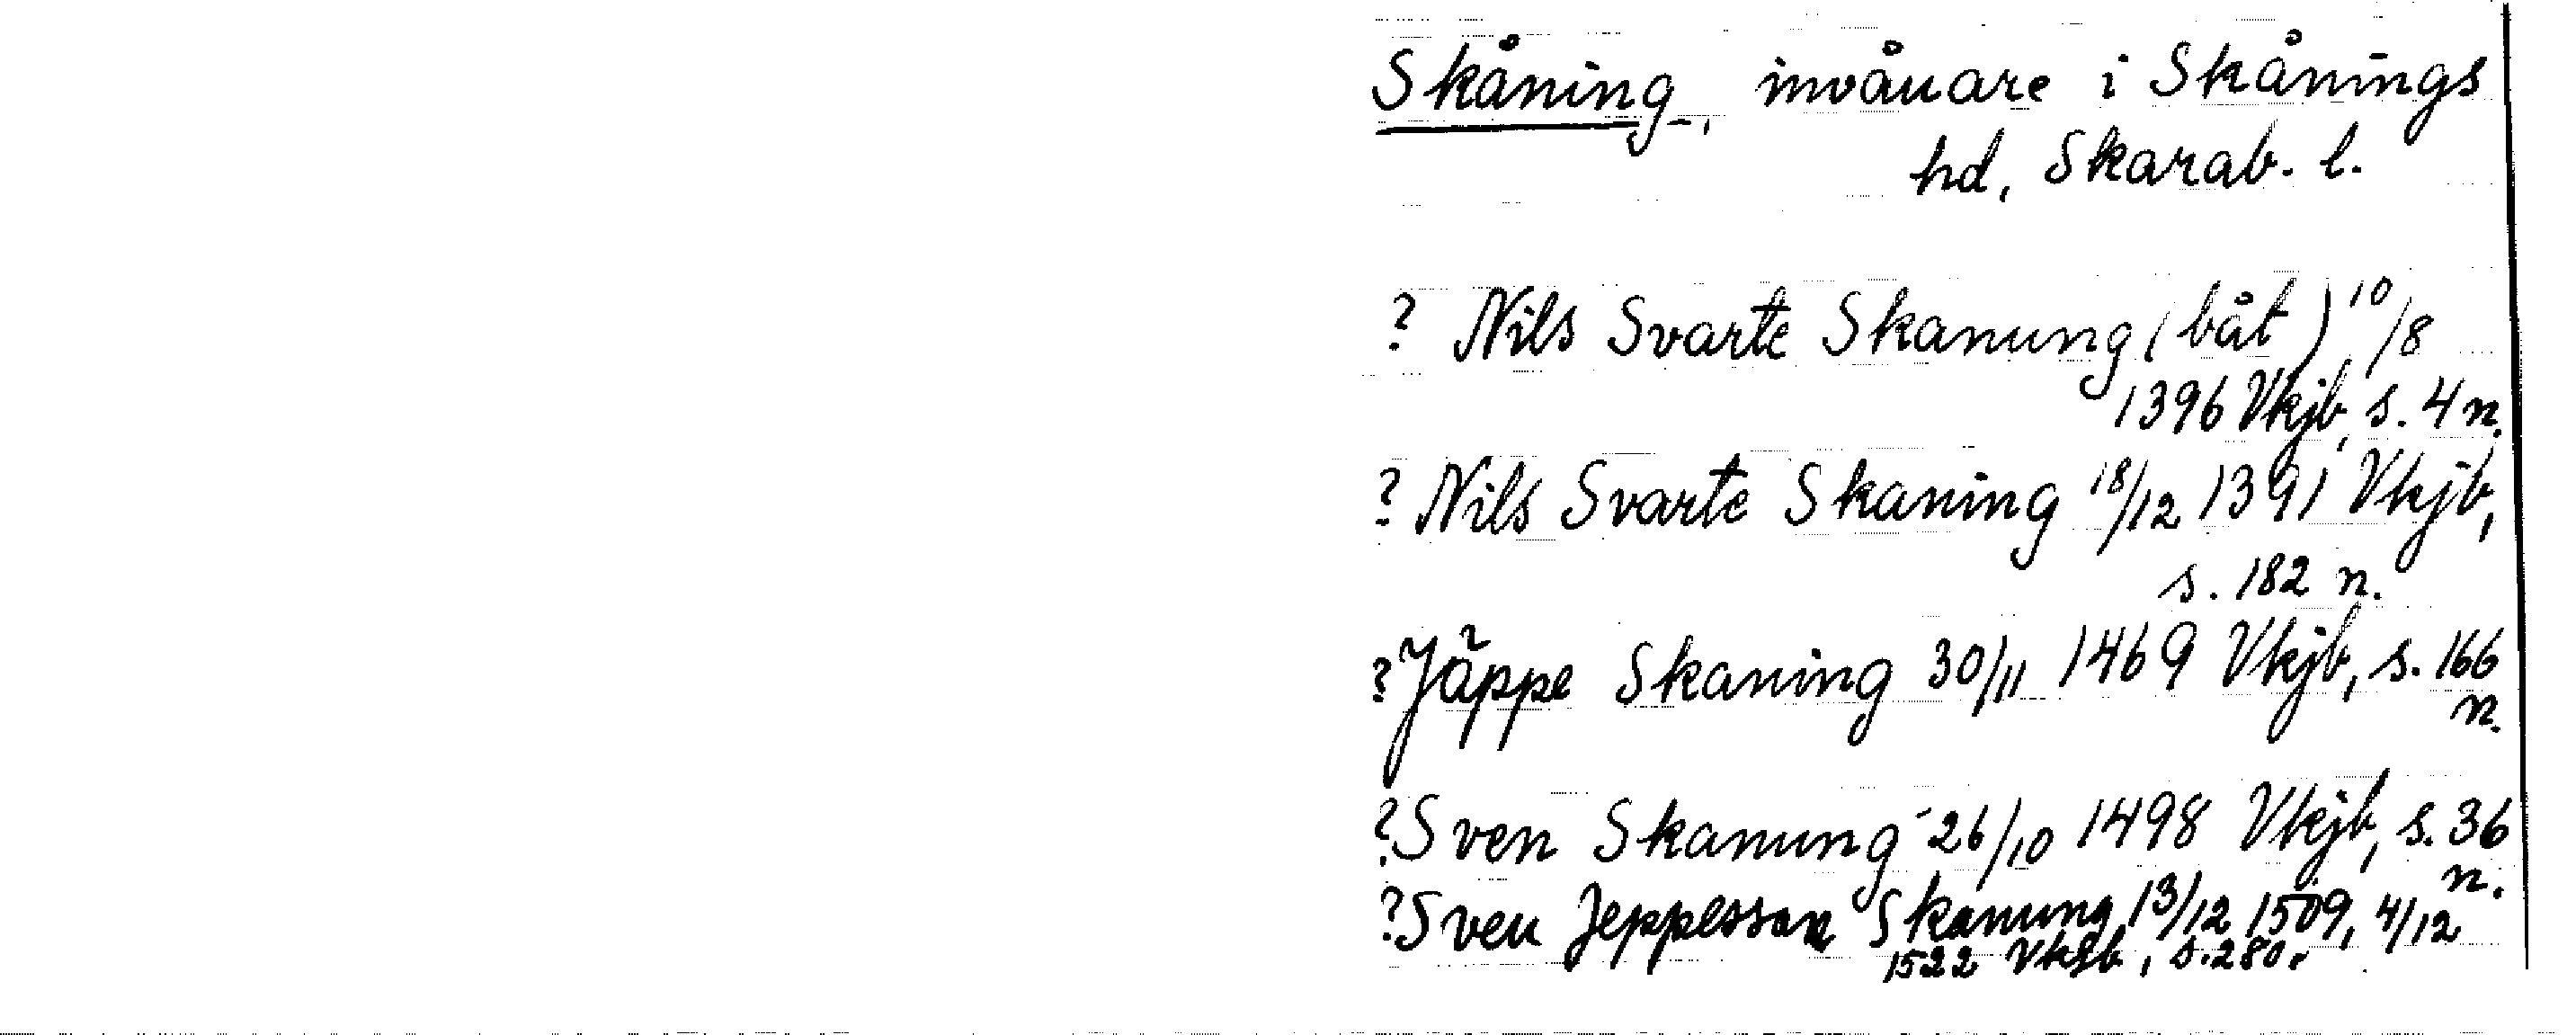 Skåning, invånare i Skånings
hd, Skarab. l.
? Nils Svarte Skanung (båt) 10/8
1396 Vkjb, s. 4 n.
? Nils Svarte Skaning 18/12 1391 Vkjb,
s. 182 n.
? Jäppe Skaning 30/11 1469 Vkjb, s. 166
n.
? Sven Skanung 26/10 1498 Vkjb, s. 36
n.
? Sven Jeppesson Skanung 13/12 1509, 4/12
1522 Vksb, s. 280.